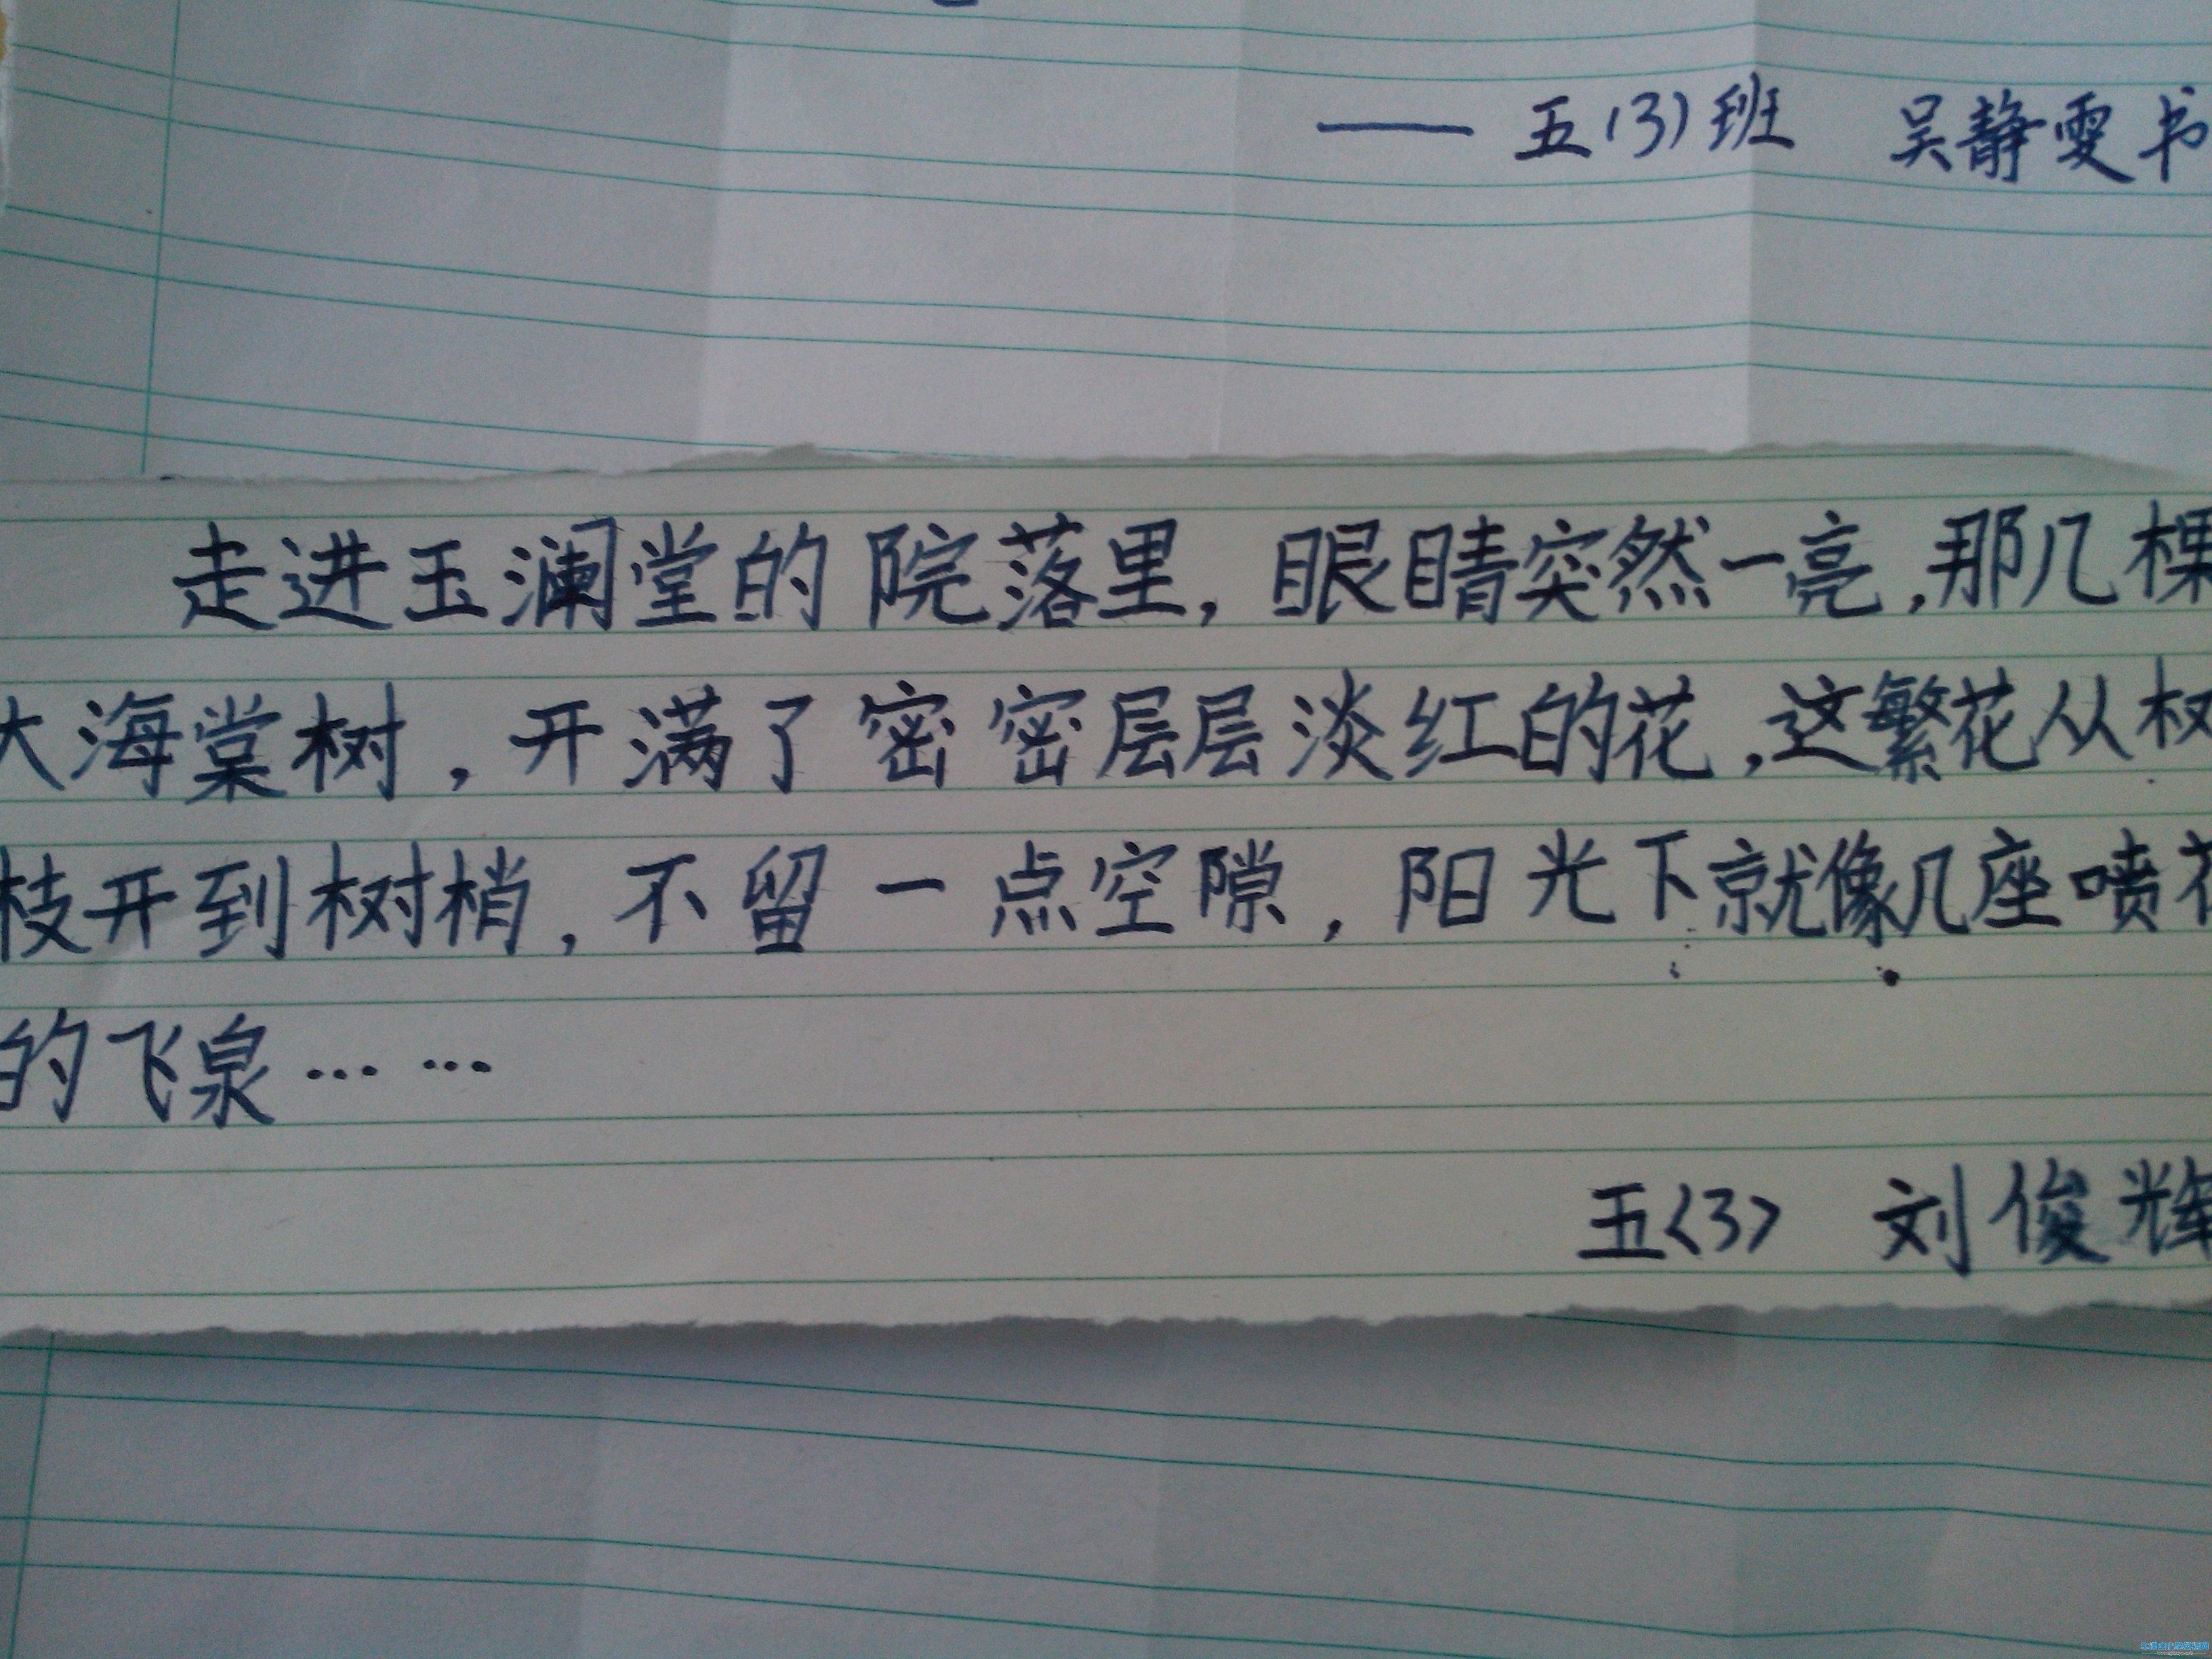 —— 五(3)班 吴静雯书
走进玉澜堂的院落里,眼睛突然一亮,那几棵
大海棠树,开满了密密层层淡红的花,这繁花从树
枝开到树梢,不留一点空隙,阳光下就像几座喷花
的飞泉……
五<3> 刘俊辉